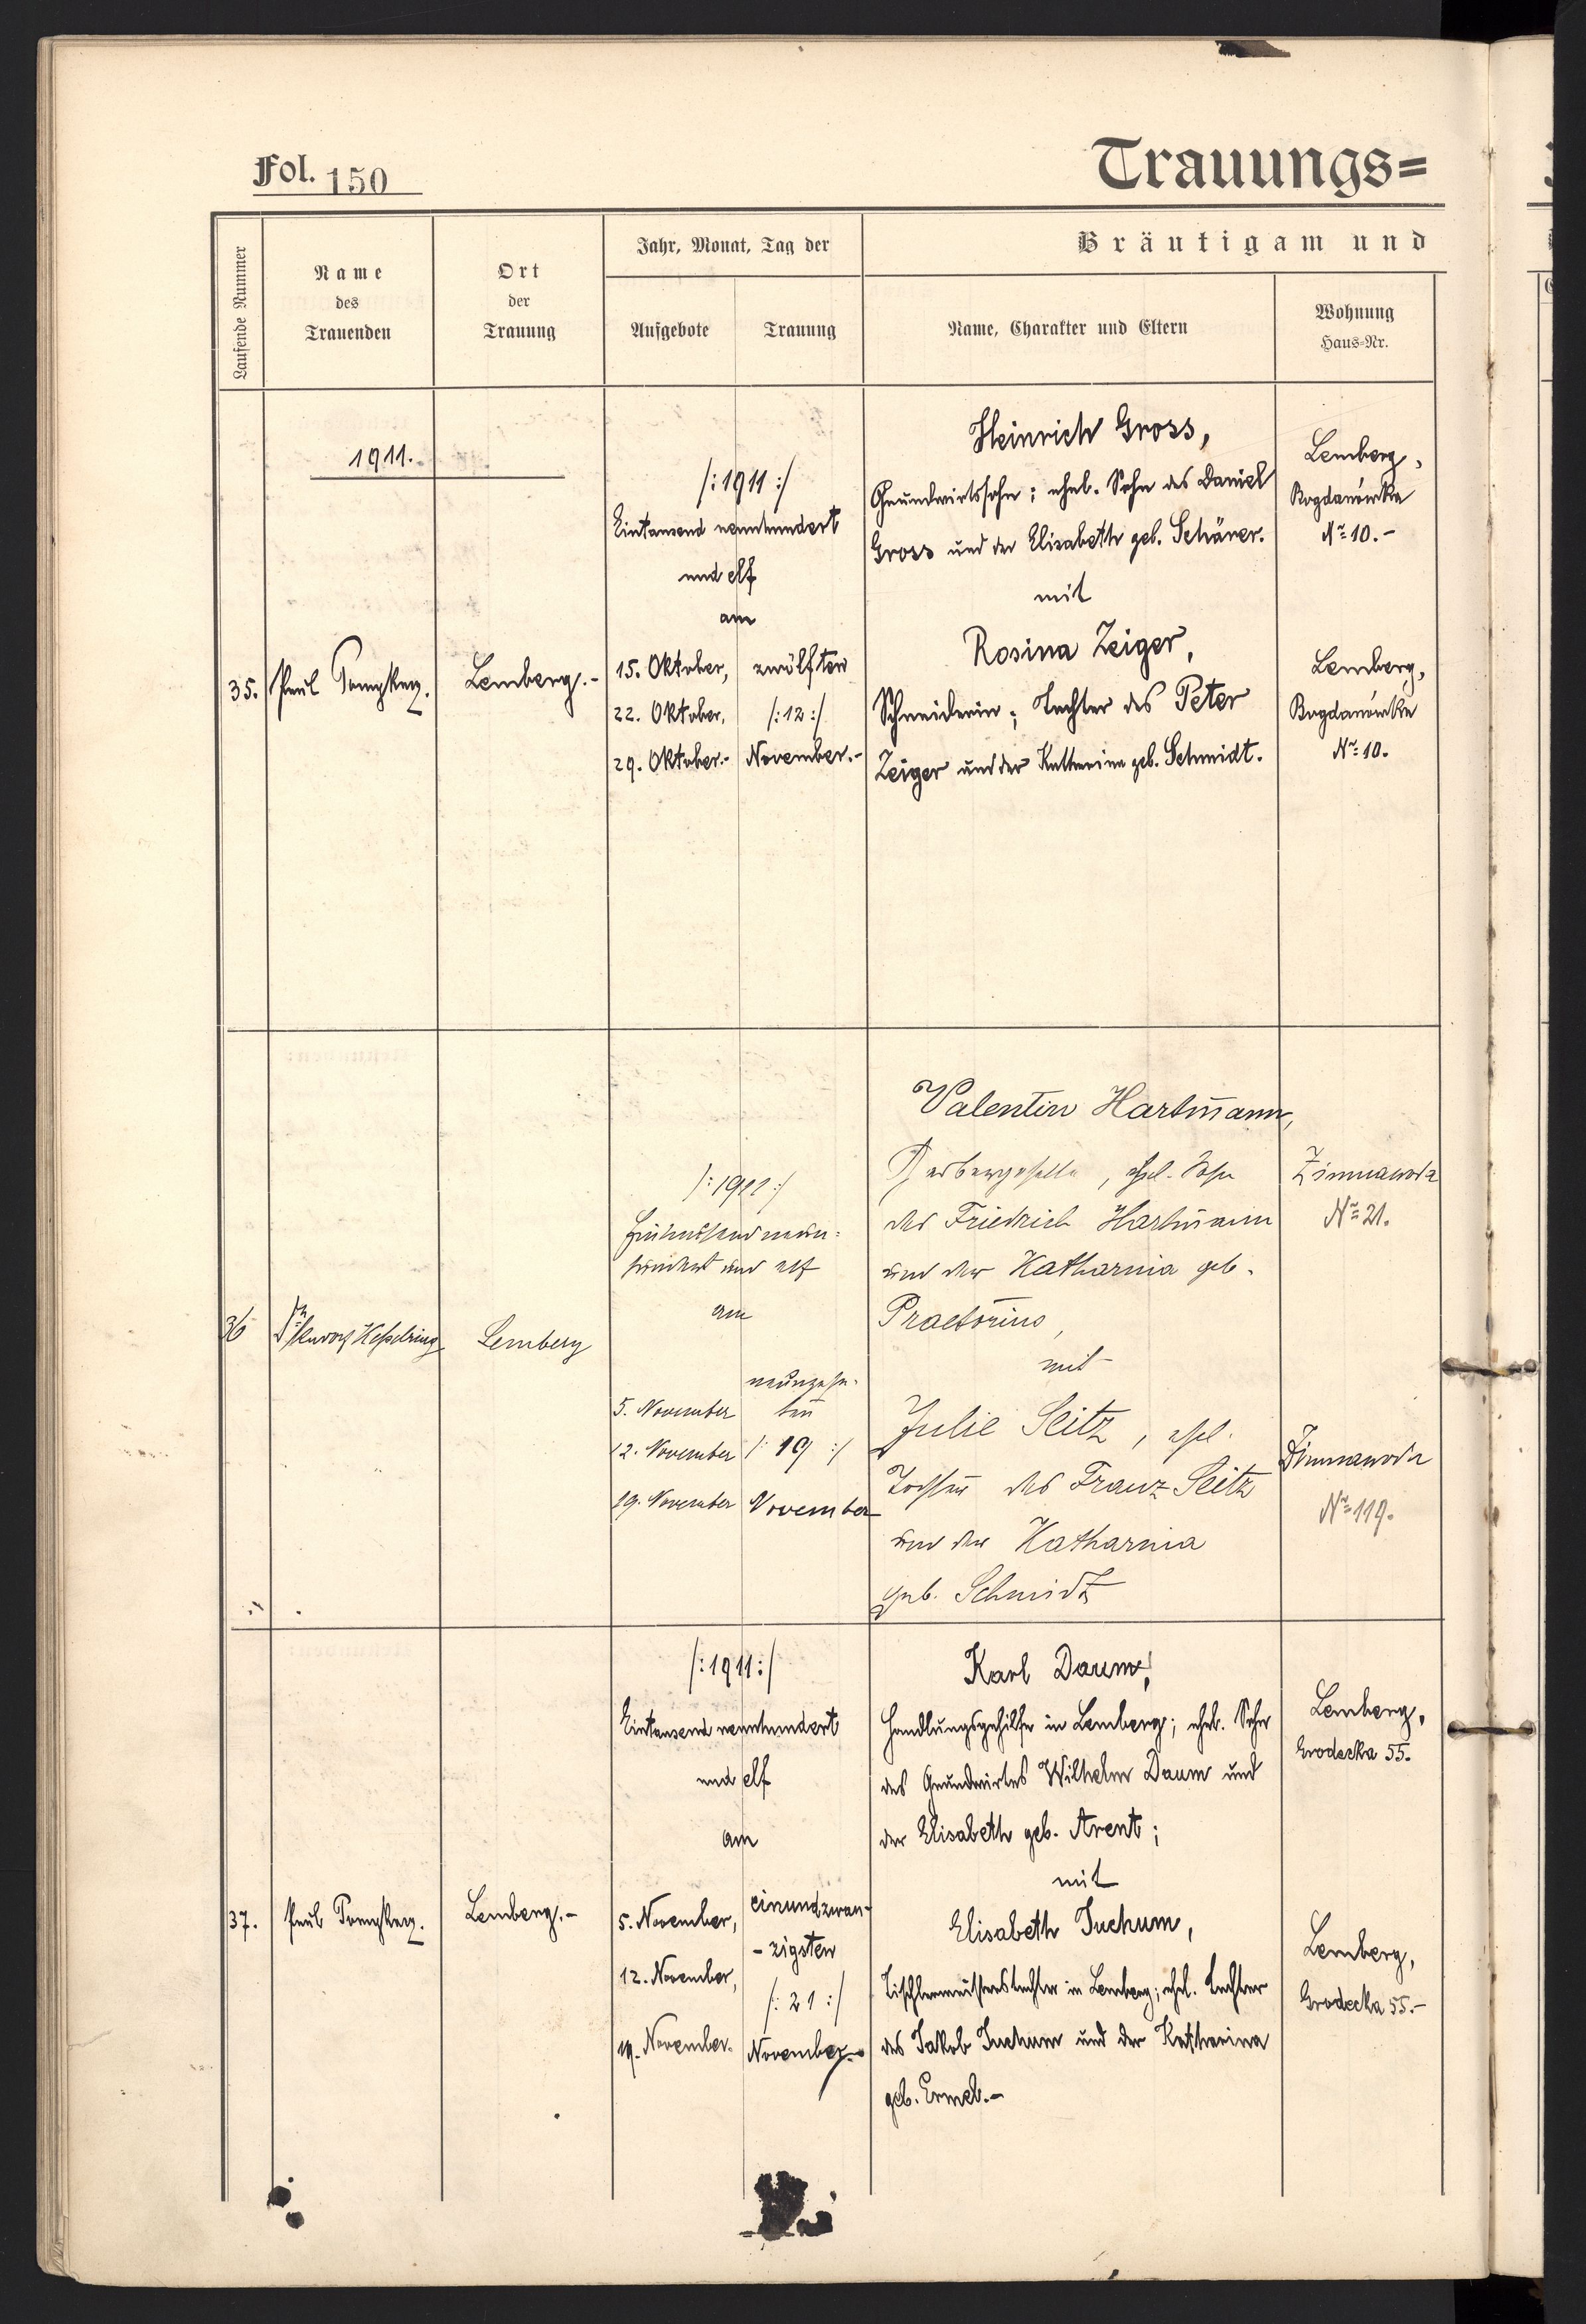 Fol. 150
Trauungs=
Laufende Nummer
Name
des
Trauenden
Ort
der
Trauung
Jahr, Monat, Tag der
Aufgebote
Trauung
Bräutigam und
Name, Charakter und Eltern
Wohnung
Haus-Nr.
1911.
35.
Paul
Lemberg.-
/:1911:/
Eintausend neunhundert
und elf
am
15. Oktober,
22. Oktober,
29. Oktober.-
zwölften
/:12:/
November.-
Heinrich Gross,
Grundwirtssohn; ehel. Sohn des Daniel
Gross und der Elisabeth geb. Schärer.
mit
Rosina Zeiger,
Schneiderin; Tochter des Peter
Zeiger und der Katharina geb. Schmidt.
Lemberg,
Bogdanówka
Nr: 10.-
Lemberg,
Bogdanówka
Nr: 10.
36
Kesselring
Lemberg
/:1911:/
Eintausend neun=
hundert und elf
am
5. November
12. November
19. November
neunzehn-
ten
/: 19 :/
November
Valentin Hartmann,
ehel. Sohn
des Friedrich Hartmann
und der Katharina geb.
Praetorius,
mit
Julie Seitz, ehel.
Tochter des Franz Seitz
und der Katharina
geb. Schmidt
Zimnawoda
Nr: 21.
Zimnawoda
Nr: 119.
37.
Paul
Lemberg.-
/:1911:/
Eintausend neunhundert
und elf
am
5. November,
12. November,
19. November.
einundzwan-
-zigsten
/: 21 :/
November.-
Karl Daum,
Handlungsgehilfe in Lemberg; ehel. Sohn
des Grundwirtes Wilhelm Daum und
der Elisabeth geb. Arent;
mit
Elisabeth Juchum,
Tischlermeisterstochter in Lemberg; ehel. Tochter
des Jakob Juchum und der Katharina
geb. Ermel.-
Lemberg,
Grodecka 55.
Lemberg,
Grodecka 55.-